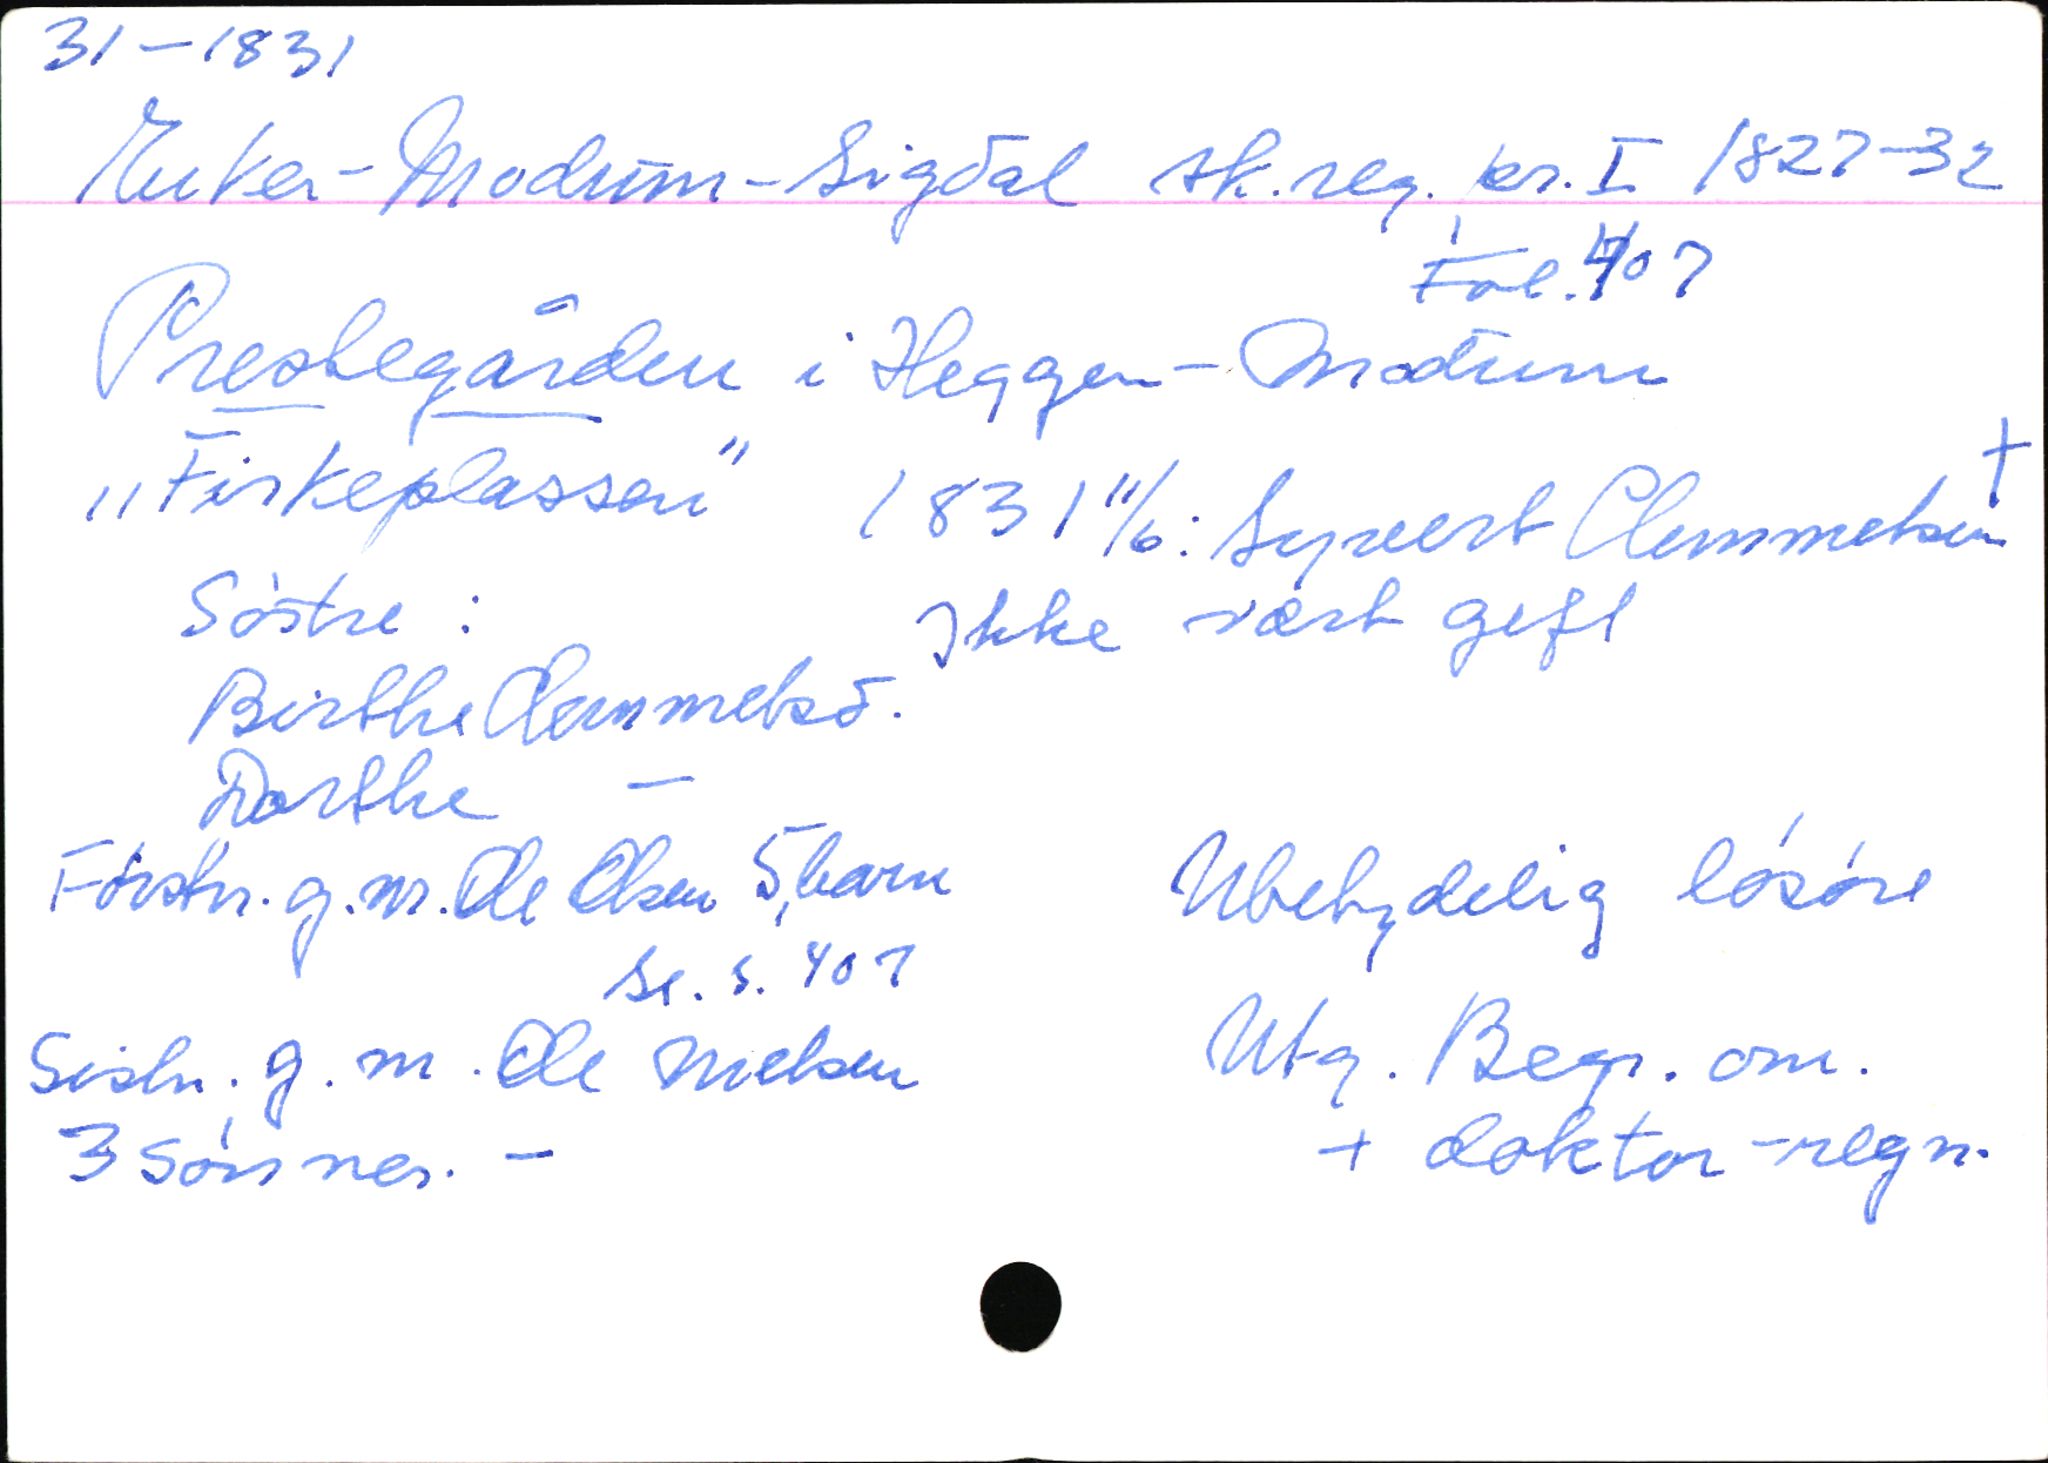 31-1831
Euker-Modum-Sigdal sk.reg. pr. I 1827-32
Fol. 407
Prestegården i Heggen-Modum
"Fiskeplassen" 1831 11/6: Syvert Clemmetsen †
Søstre : Ikke vært gift
Birthe Clemmetsd.
Dorthe —
Førstn. g.m. Ole Olsen 5 barn Ubetydelig løsøre
Se. s. 407
Sistn. g.m. Ole Nielsen Utg. Begr. om.
3 sønner. - + doktor-regn.